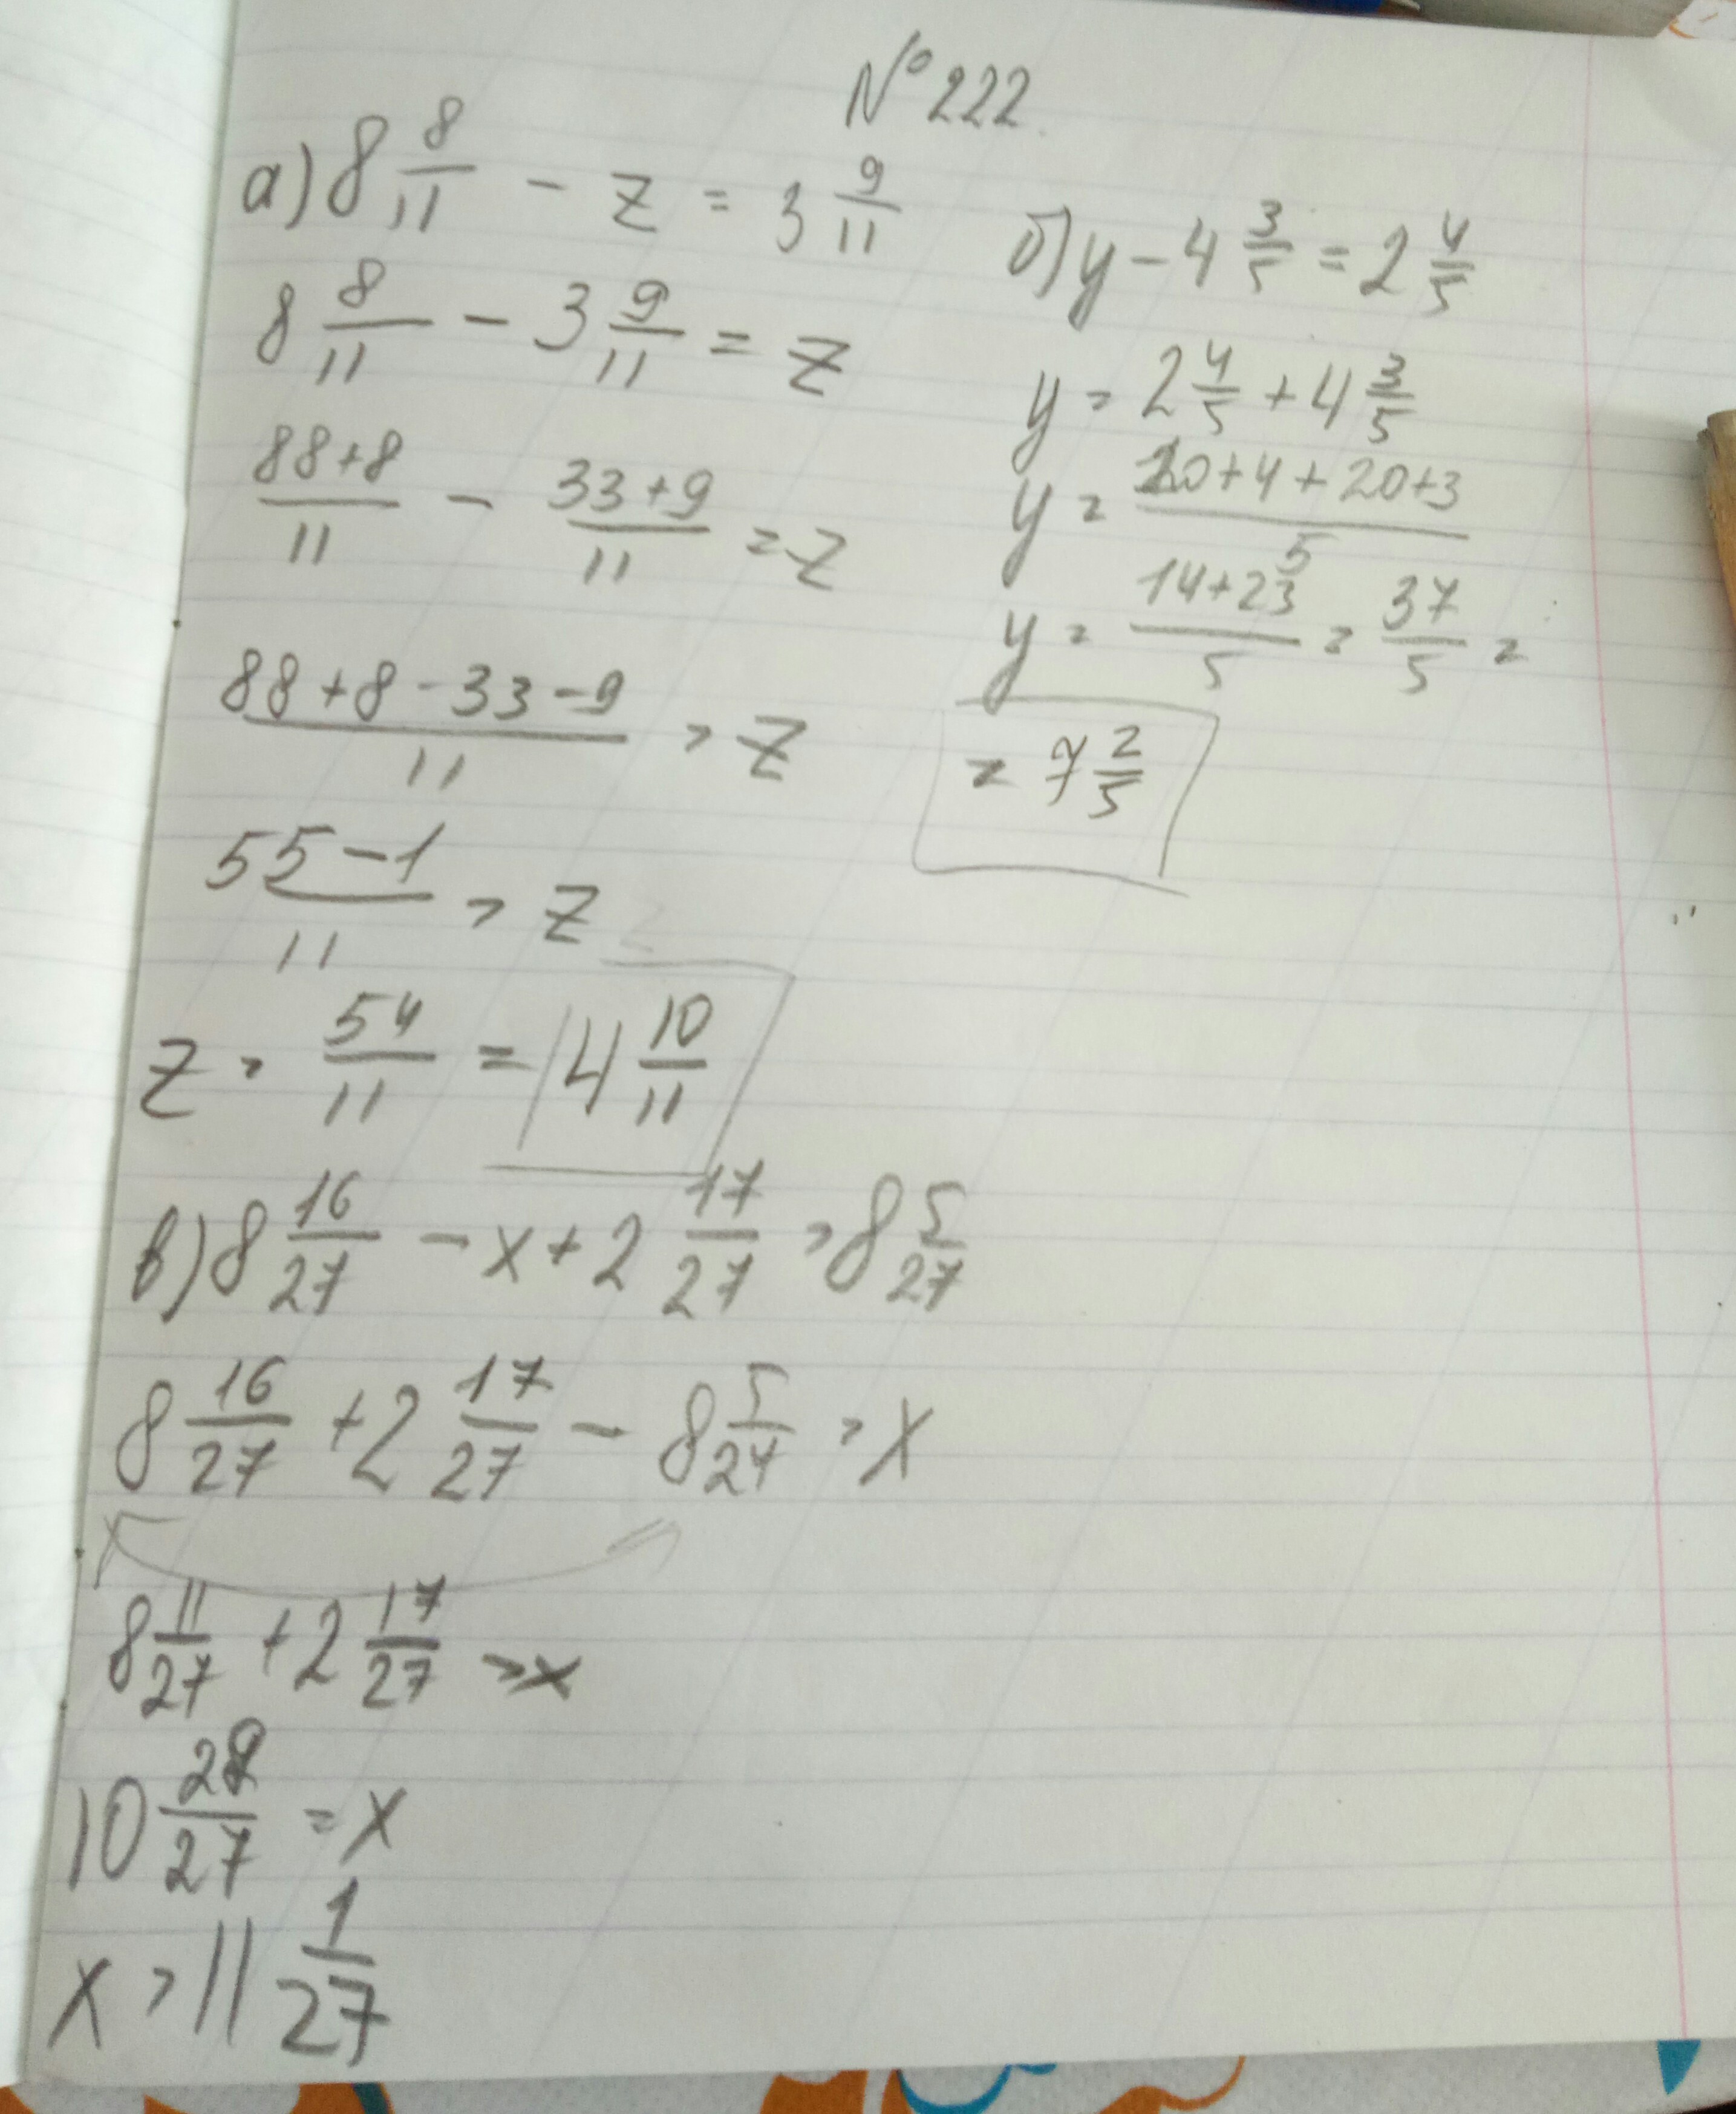 № 222.
а) 8 8/11 - z = 3 9/11
8 8/11 - 3 9/11 = z
88+8/11 - 33+9/11 = z
88+8-33-9/11 = z
55-1/11 = z
z = 54/11 = 4 10/11
б) y - 4 3/5 = 2 4/5
y = 2 4/5 + 4 3/5
y = 10+4+20+3/5
y = 14+23/5 = 37/5 =
= 7 2/5
в) 8 16/27 - x + 2 17/27 = 8 5/27
8 16/27 + 2 17/27 - 8 5/27 = x
8 11/27 + 2 17/27 = x
10 28/27 = x
x = 11 1/27